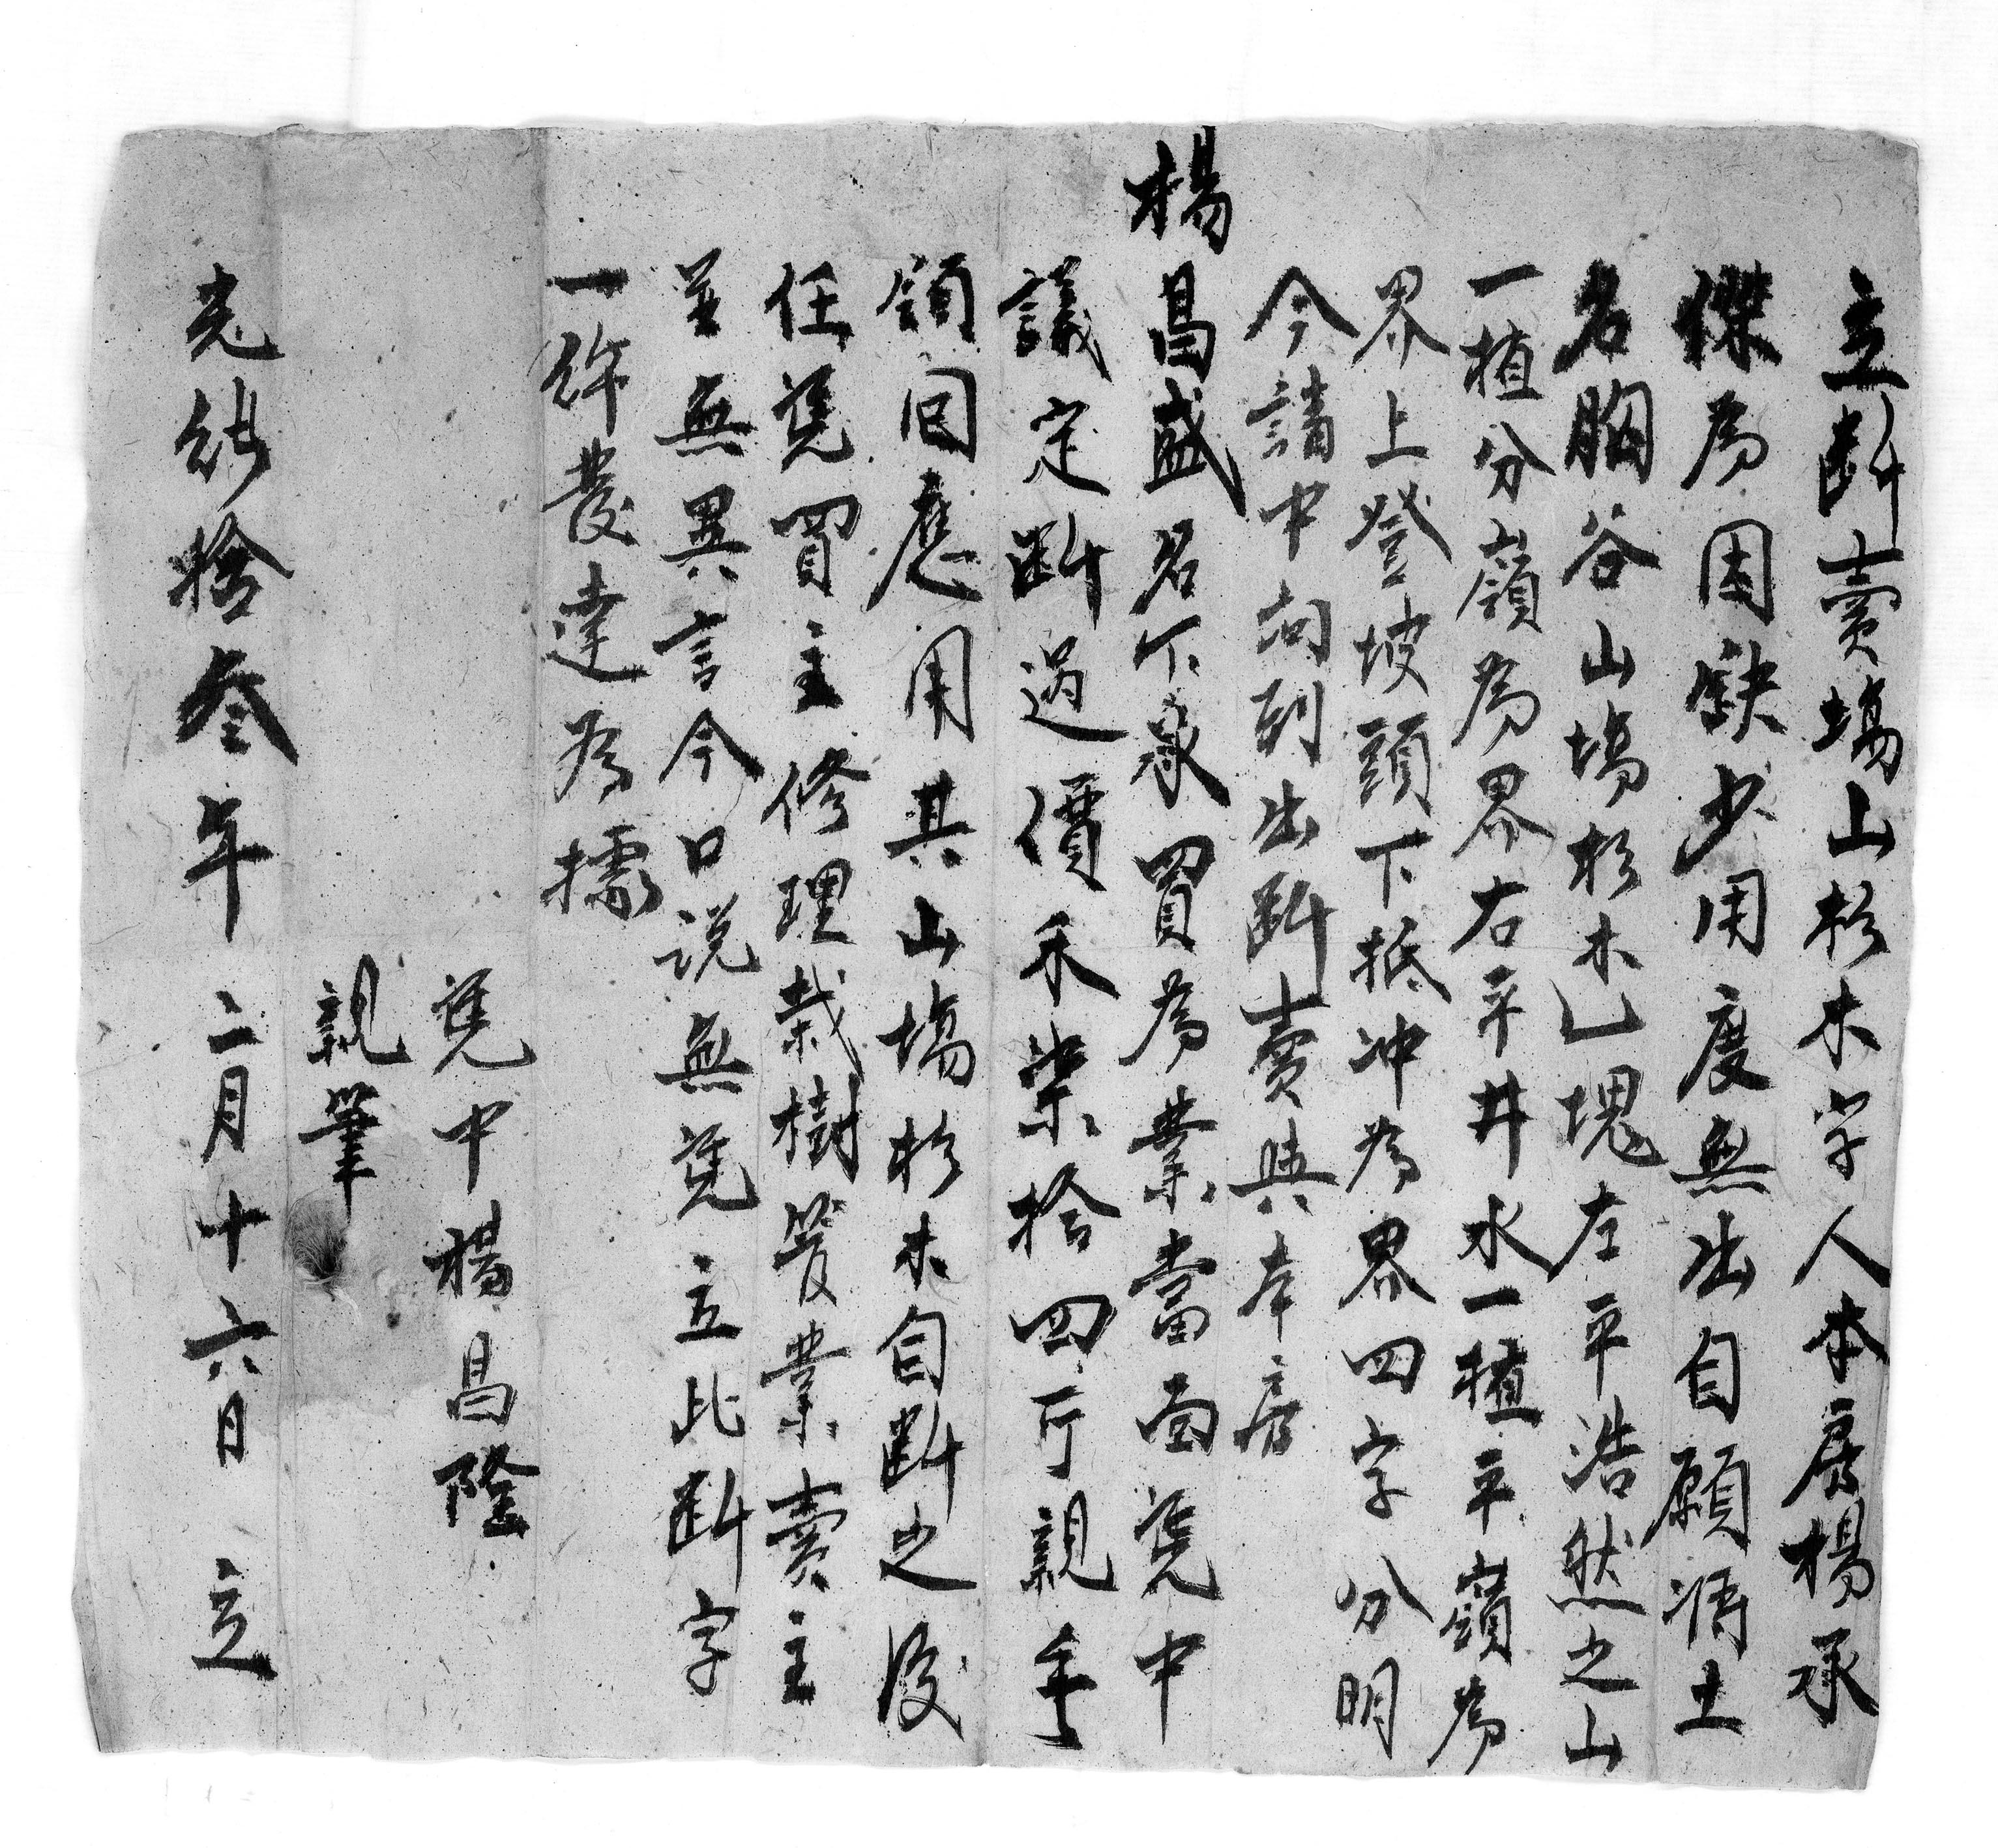 立斷賣塲山杉木字人本房楊承
傑為因缺少用度無出自願將土
名胸谷山塲杉木乙塊左平浩然之山
一植分嶺為界右平井水一植平嶺為
界上登坡頭下抵冲為界四字分明
今請中问到出斷賣與本房
楊昌盛名下承買為業當面凭中
議定斷過價禾柒拾四斤親手
領囘應用其山塲杉木自斷之後
任凭買主修理栽樹管業賣主
並無異言今口说無凭立此斷字
一帋發達為據
凭中楊昌隆
親筆
光緒拾叁年二月十六日立